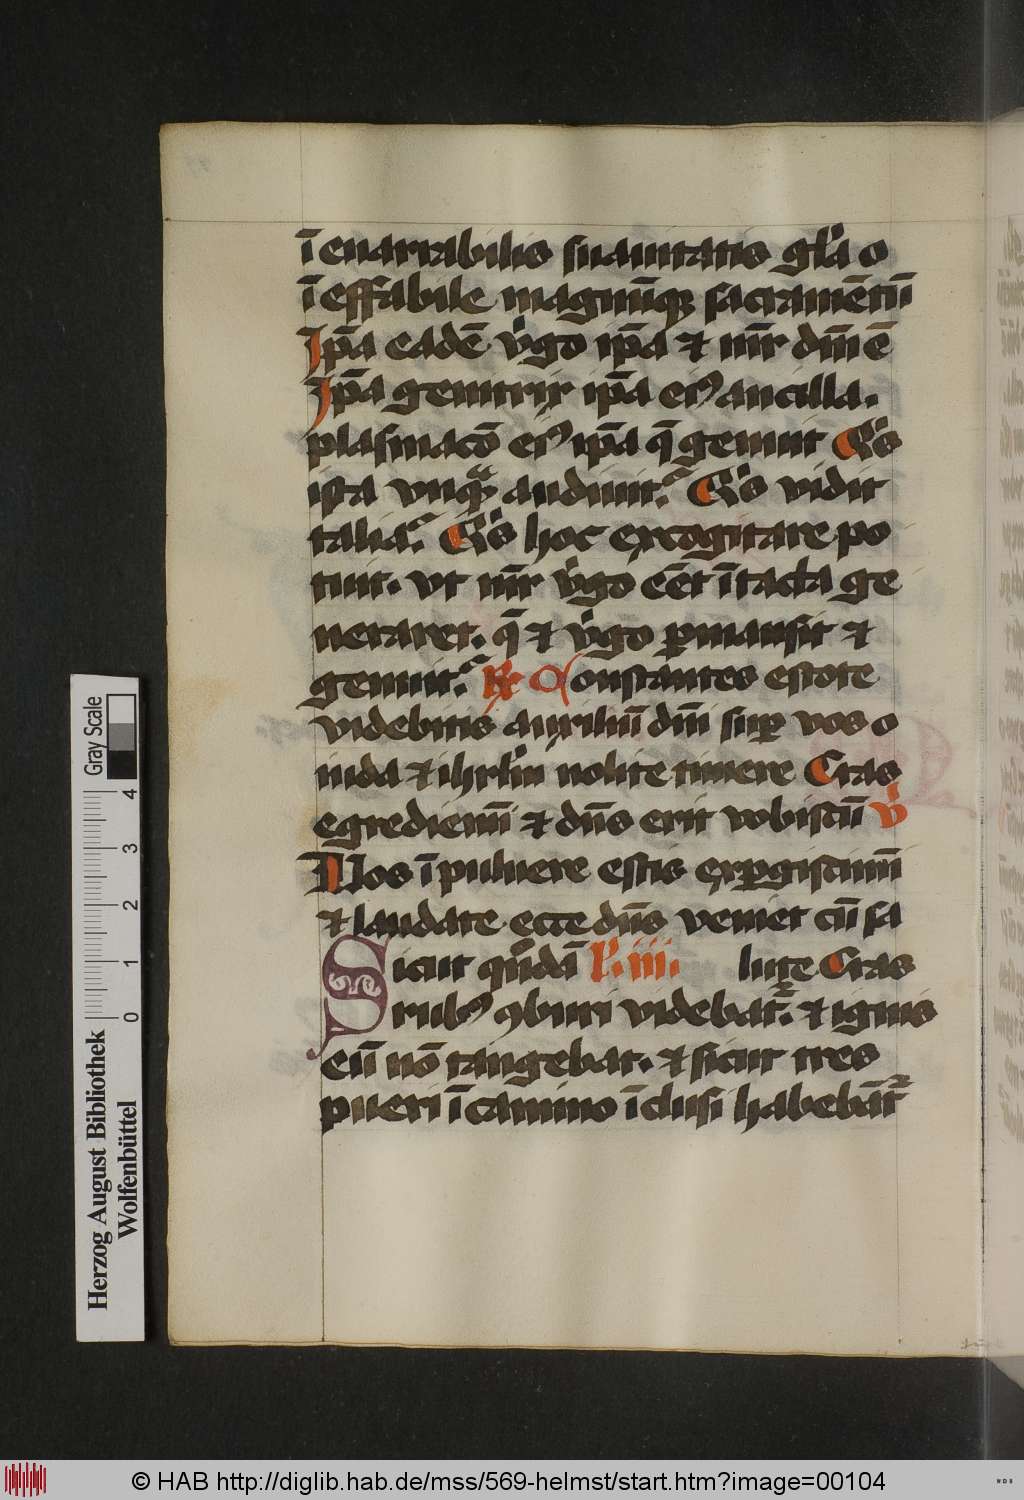 īenarrabilis suauitatis gl'ia o
īeffabile magnūq3 sacramētū
Ip̄a eadē v'go ip̄a ⁊ mr̄ dm̄ ē
Ip̄a genitrix ip̄a ei9 ancilla.
plasmacō ei9 ip̄a q̄ genuit Q's
ista vnq̄ audiuit? Q's vidit
talia? Q's hoc excogitare po
tuit. vt mr̄ v'go eēt ītacta ge
neraret. q̄ ⁊ v'go ꝑmansit ⁊
genuit? ℟ Constantes estote
videbitis auxiliū dm̄ suꝑ vos o
iuda ⁊ ihrl'm nolite timere Cras
egrediemī ⁊ dn̄s erit vobiscū V'
Uos ī puluere estis exꝑgiscimī
⁊ laudate ecce dn̄s veniet cū sa
Sicut q̄ndā l'. iii. lute Cras
rub9 ꝯburi videbat^r. ⁊ ignis
eū nō tangebat. ⁊ sicut tres
pueri ī camino īclusi habebāt^r
Gray Scale
0 1 2 3 4
Herzog August Bibliothek
Wolfenbüttel
© HAB http://diglib.hab.de/mss/569-helmst/start.htm?image=00104